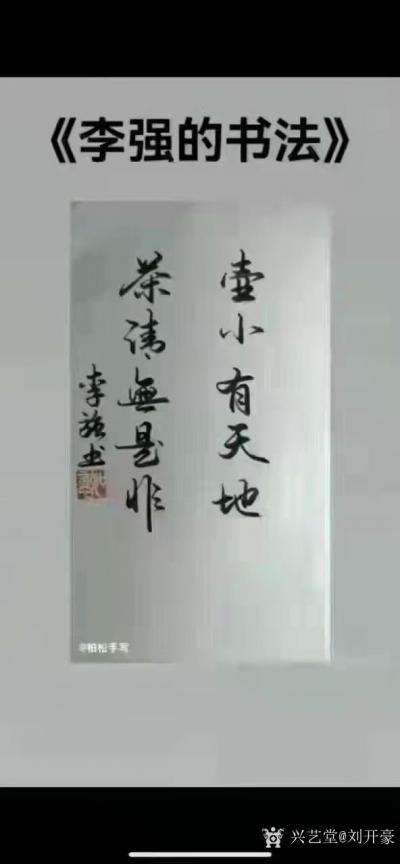 《李强的书法》
壶小有天地
茶清無是非
李强书
@柏松手写
兴艺堂@刘开豪